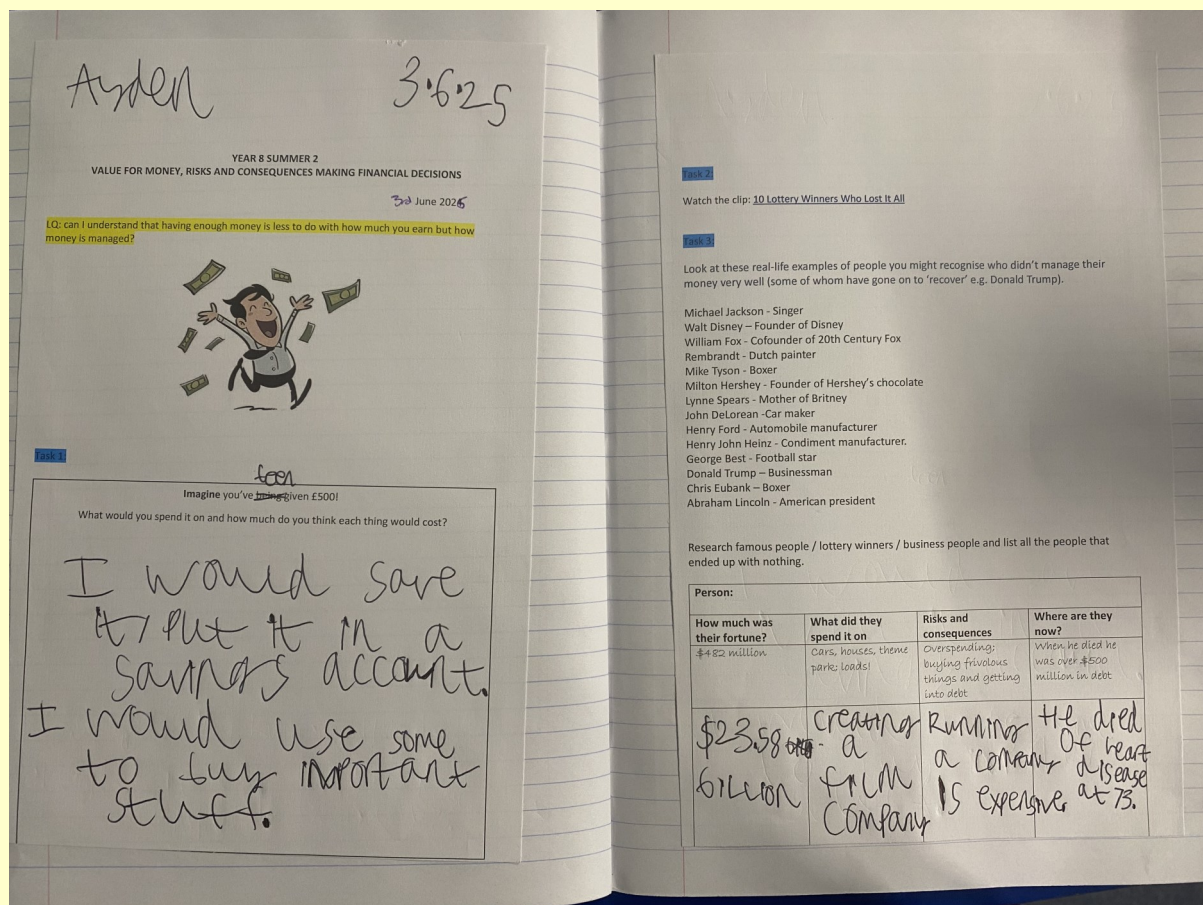 Ayden 3.6.25
YEAR 8 SUMMER 2
VALUE FOR MONEY, RISKS AND CONSEQUENCES MAKING FINANCIAL DECISIONS
3rd June 2025
LQ: can I understand that having enough money is less to do with how much you earn but how
money is managed?
Task 1:
been
Imagine you've being given £500!
What would you spend it on and how much do you think each thing would cost?
I would save
it/put it in a
savings account.
I would use some
to buy important
stuff.
Task 2:
Watch the clip: 10 Lottery Winners Who Lost It All
Task 3:
Look at these real-life examples of people you might recognise who didn't manage their
money very well (some of whom have gone on to 'recover' e.g. Donald Trump).
Michael Jackson - Singer
Walt Disney – Founder of Disney
William Fox - Cofounder of 20th Century Fox
Rembrandt - Dutch painter
Mike Tyson - Boxer
Milton Hershey - Founder of Hershey's chocolate
Lynne Spears - Mother of Britney
John DeLorean -Car maker
Henry Ford - Automobile manufacturer
Henry John Heinz - Condiment manufacturer.
George Best - Football star
Donald Trump – Businessman
Chris Eubank – Boxer
Abraham Lincoln - American president
Research famous people / lottery winners / business people and list all the people that
ended up with nothing.
Person:
How much was
their fortune?
What did they
spend it on
Risks and
consequences
Where are they
now?
$482 million
Cars, houses, theme
park; loads!
Overspending;
buying frivolous
things and getting
into debt
When he died he
was over $500
million in debt
$23.58
billion
creating
a
film
company
Running
a company
is expensive
He died
of heart
disease
at 73.